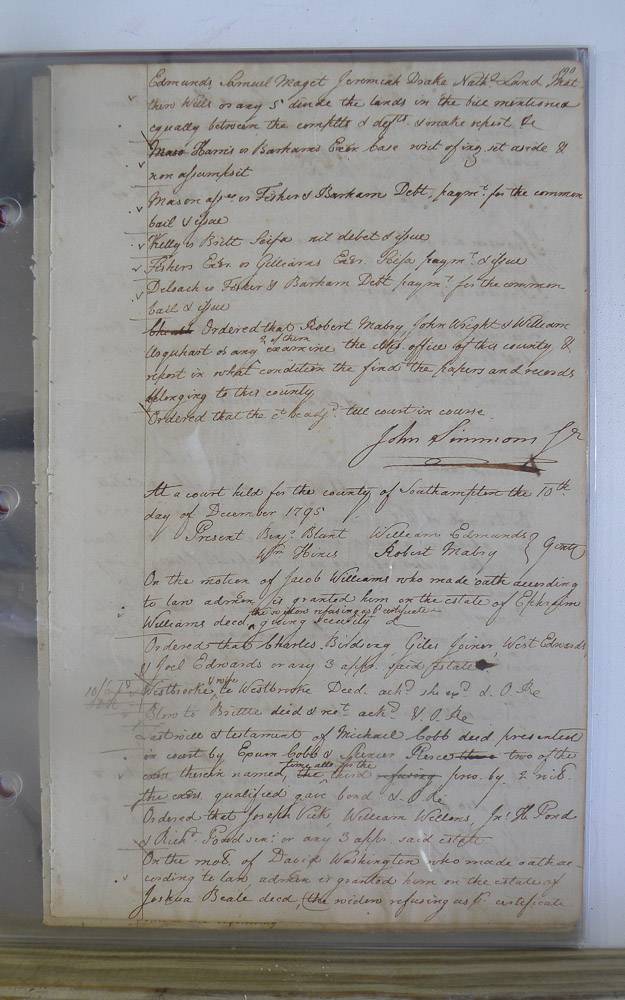 190
Edmunds, Samuel Maget Jeremiah Drake Nathl Land That
then Wills or any 5 divide the lands in the bill mentioned
equally between the complts & defts & make report &c
Mason Harris vs Barhams Exor. Case writ of inq. set aside &
non assumpsit
Mason assee vs Fisher & Barham Debt, paymt. for the common
bail & issue
Kelly vs Britt Scifa nil debet & issue
Fishers Exor. vs Gilliams Exr. Scifa paymt. & issue
Deloach vs Fisher & Barham Debt paymt for the common
bail & issue
Ordered that Robert Mabry, John Wright & William
Urquhart or any 2 of them examine the Clks office of this county &
report in what condition the find the papers and records
belonging to this county
Ordered that the ct be adjd. till court in course
John Simmons Jr
At a court held for the county of Southampton the 10th
day of December 1795
Present Benja. Blunt William Edmunds
Wm Hines Robert Mabry } Gentn
On the motion of Jacob Williams who made oath according
to law admon is granted him on the estate of Ephraim
Williams decd, the widow refusing as P certificate giving security &
Ordered that Charles Birdsong, Giles Joiner, West Edwards
& Joel Edwards or any 3 appr. said estate
Westbrooke & wife to Westbrooke Deed. ackd. she exd. & O Re
Blow to Brittle deed & rect. ackd. & O Re
Last will & testament of Michael Cobb decd presented
in court by Exum Cobb & Spencer Pierce two of the
exors therein named, time allo for the third refusing pro. by 2 wits.
the exors. qualified gave bond & O Re
Ordered that Joseph Vick, William Wellons, Jno. H. Pond
& Richd. Pond senr. or any 3 appr. said estate
On the mo. of David Washington who made oath ac-
cording to law admon is granted him on the estate of
Joshua Beale decd, (the widow refusing as P certificate